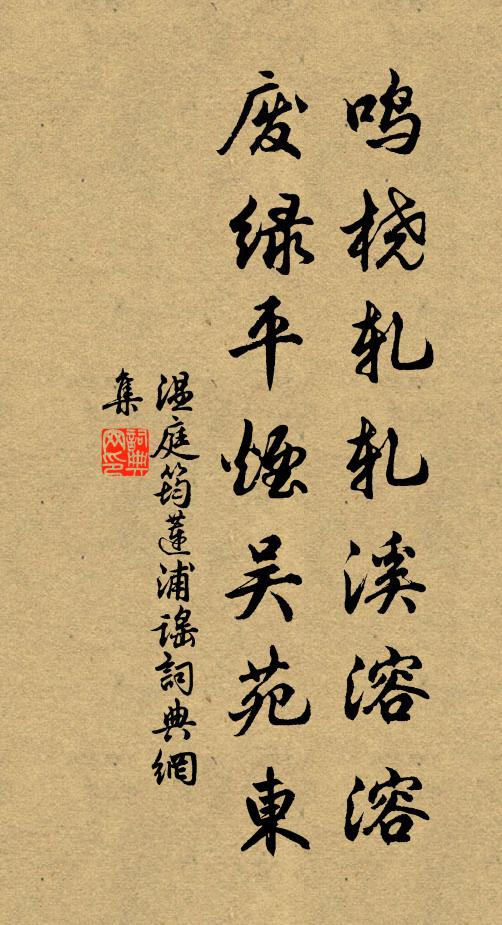 鸣桡轧轧溪溶溶
废绿平烟吴苑东
温庭筠莲浦谣詞典網
集
詞典
网印